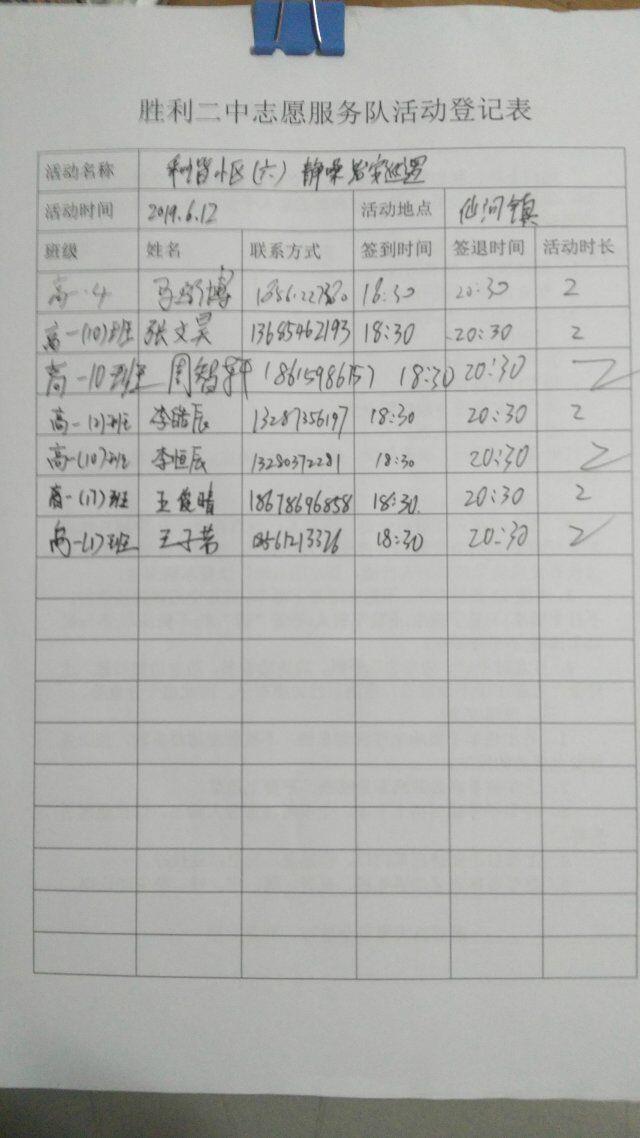 胜利二中志愿服务队活动登记表
活动名称 小区(六) 静噪
活动时间 2019.6.12 活动地点 仙河镇
班级 姓名 联系方式 签到时间 签退时间 活动时长
高一.4 18:30 20:30 2
高一(10)班 张文昊 13685462193 18:30 20:30 2
高一10班 周智轩 18615986157 18:30 20:30 2
高一 班 李皓辰 13287356197 18:30 20:30 2
高一(10)班 李恒辰 13280372281 18:30 20:30 2
高一(17)班 王俊晴 18678696858 18:30 20:30 2
高一(1)班 王子 18:30 20:30 2